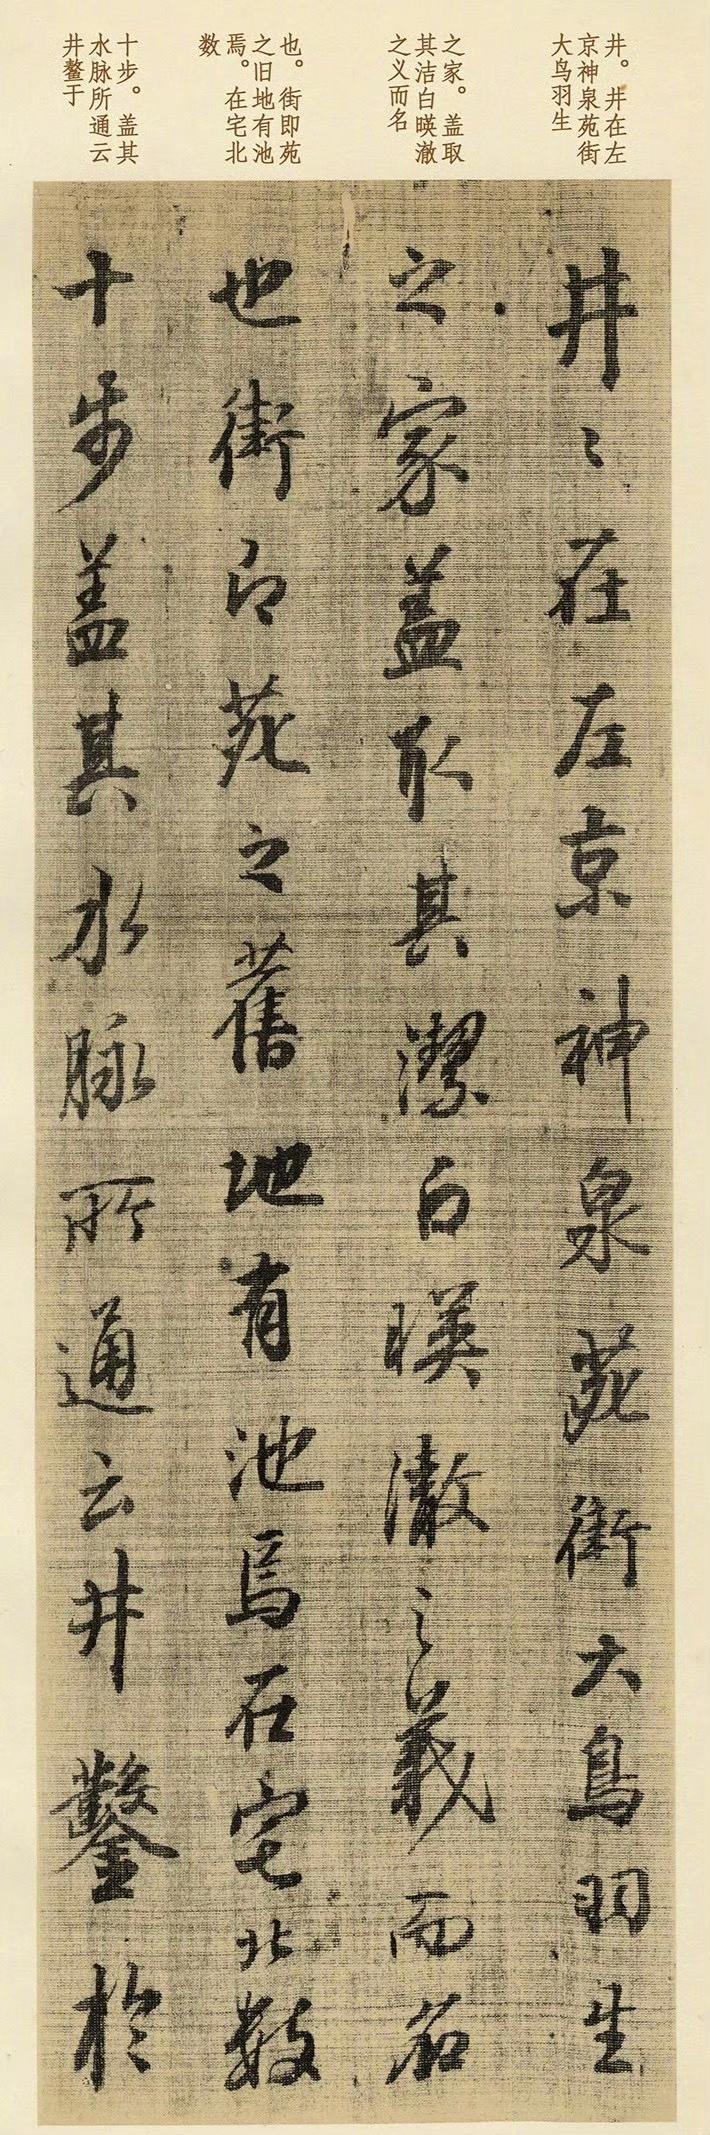 井。井在左
京神泉苑街
大鸟羽生
之家。盖取
其洁白暎澈
之义而名
也。街即苑
之旧地有池
焉。在宅北
数
十步。盖其
水脉所通云
井鳌于
井〻在左京神泉苑街大鳥羽生
之家盖取其潔白暎澈之義而名
也街即苑之舊地有池焉在宅北數
十步盖其水脉所通云井鑿於